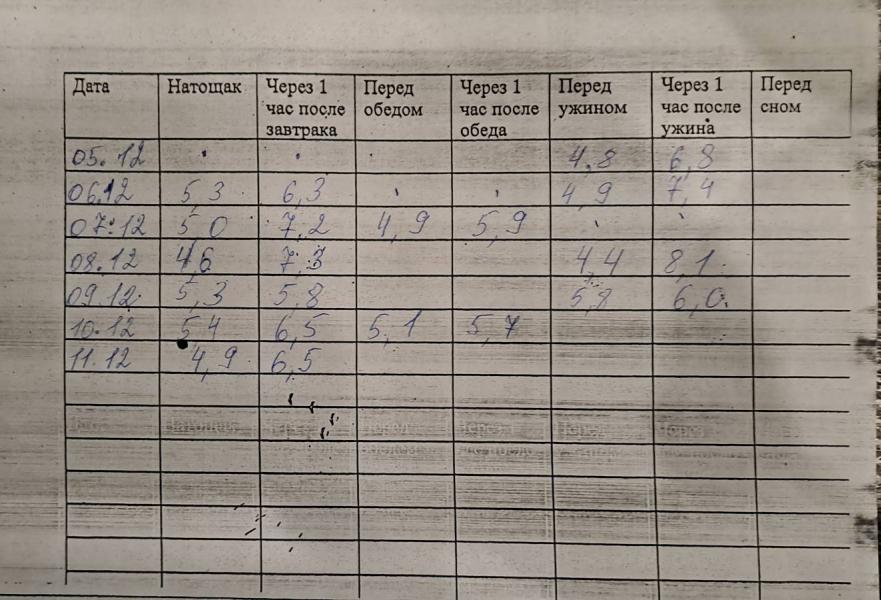 Дата Натощак Через 1 час после завтрака Перед обедом Через 1 час после обеда Перед ужином Через 1 час после ужина Перед сном
05.12 4,8 6,8
06.12 5,3 6,3 4,9 7,4
07.12 5 0 7,2 4,9 5,9
08.12 4,6 7,3 4,4 8,1
09.12 5,3 5,8 5,8 6,0
10.12 5,4 6,5 5,1 5,7
11.12 4,9 6,5